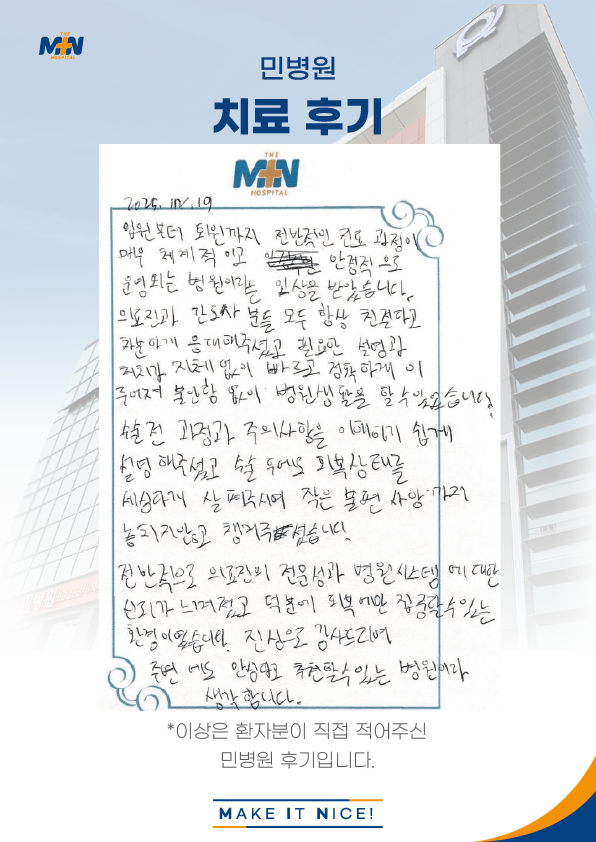 THE
MIN
HOSPITAL
민병원
치료 후기
THE
MIN
HOSPITAL
2025. 10/.19
입원부터 퇴원까지 전반적인 진료 과정이
매우 체계적이고 안정적으로
운영되는 병원이라는 인상을 받았습니다.
의료진과 간호사 분들 모두 항상 친절하고
차분하게 응대해주셨고 필요한 설명과
처치가 지체없이 빠르고 정확하게 이
주어져 불안함 없이 병원생활을 할수있었습니다.
수술전 과정과 주의사항을 이해하기 쉽게
설명해주셨고 수술 후에도 회복상태를
세심하게 살펴주시며 작은 불편 사항까지
놓치지않고 챙겨주셨습니다.
전반적으로 의료진의 전문성과 병원시스템에대한
신뢰가 느껴졌고 덕분에 회복에만 집중할수있는
환경이었습니다. 진심으로 감사드리며
주변에도 안심하고 추천할수있는 병원이라
생각합니다.
*이상은 환자분이 직접 적어주신
민병원 후기입니다.
MAKE IT NICE!